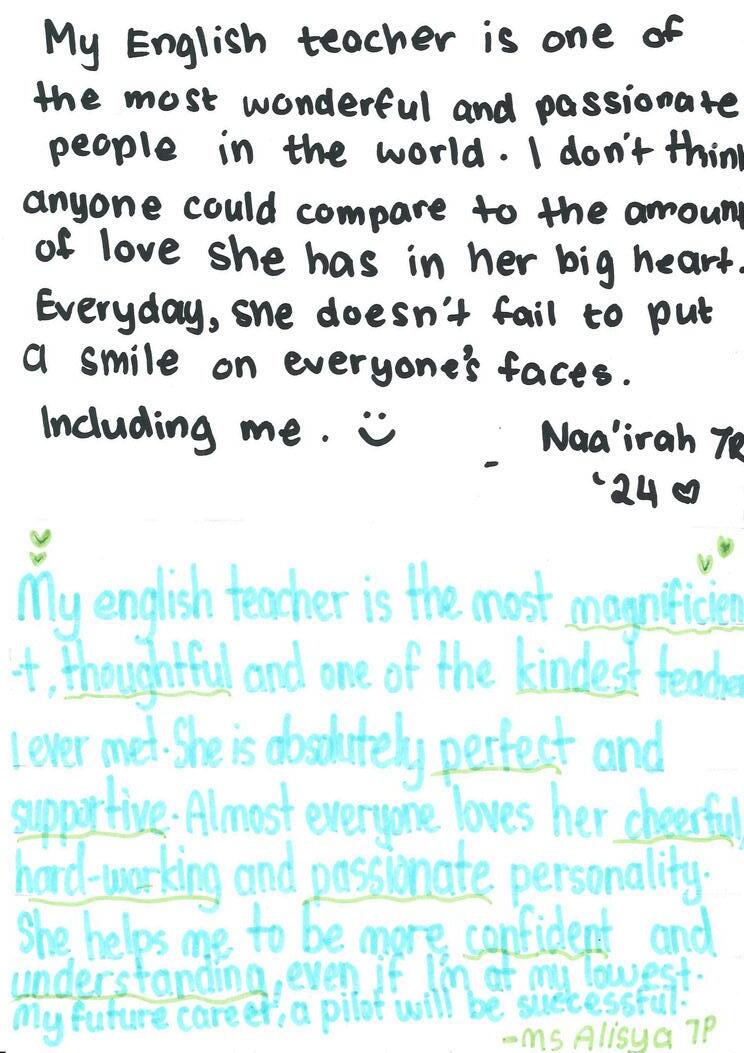 My English teacher is one of
the most wonderful and passionate
people in the world. I don't think
anyone could compare to the amount
of love she has in her big heart.
Everyday, she doesn't fail to put
a smile on everyone's faces.
Including me. :)
- Naa'irah 7R
'24 ♡
My english teacher is the most magnificien
-t, thoughtful and one of the kindest teacher
I ever met. She is absolutely perfect and
supportive. Almost everyone loves her cheerful,
hard-working and passionate personality.
She helps me to be more confident and
understanding, even if I'm at my lowest.
My future career, a pilot will be successful.
-Ms Alisya 7P